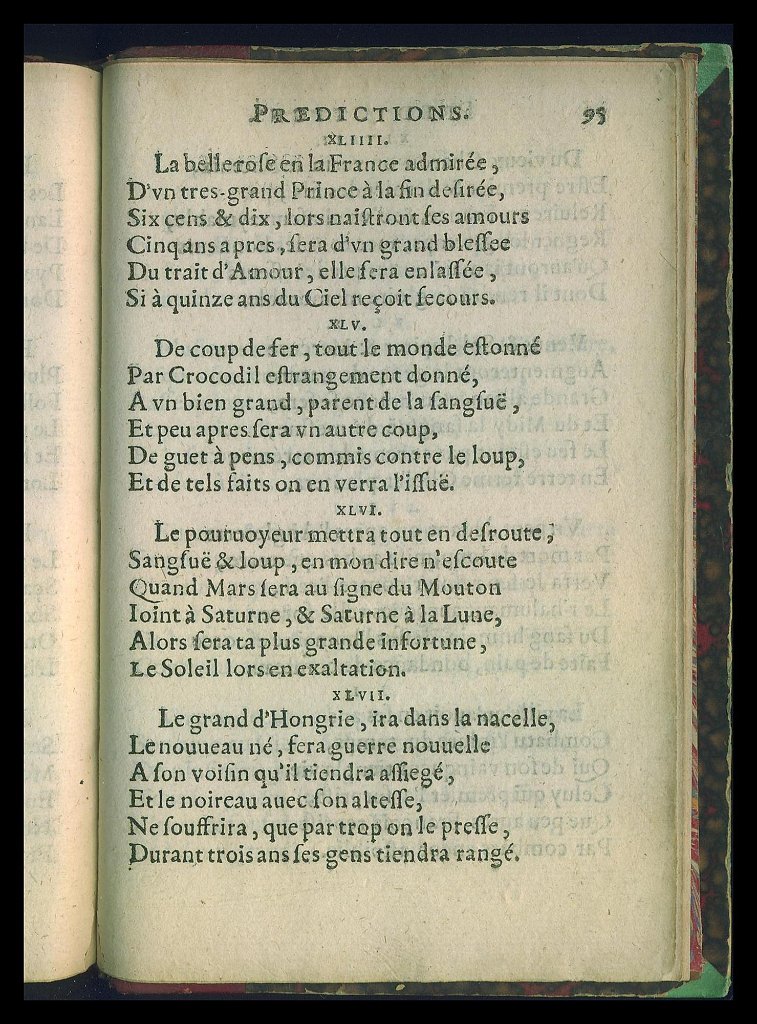 PREDICTIONS. 95
XLIIII.
La belle rose en la France admirée,
D'vn tres-grand Prince à la fin desirée,
Six cens & dix, lors naistront ses amours
Cinq ans apres, sera d'vn grand blessee
Du trait d'Amour, elle sera enlassée,
Si à quinze ans du Ciel reçoit secours.
XLV.
De coup de fer, tout le monde estonné
Par Crocodil estrangement donné,
A vn bien grand, parent de la sangsuë,
Et peu apres sera vn autre coup,
De guet à pens, commis contre le loup,
Et de tels faits on en verra l'issuë.
XLVI.
Le pouruoyeur mettra tout en desroute,
Sangsuë & loup, en mon dire n'escoute
Quand Mars sera au signe du Mouton
Ioint à Saturne, & Saturne à la Lune,
Alors sera ta plus grande infortune,
Le Soleil lors en exaltation.
XLVII.
Le grand d'Hongrie, ira dans la nacelle,
Le nouueau né, fera guerre nouuelle
A son voisin qu'il tiendra assiegé,
Et le noireau auec son altesse,
Ne souffrira, que par trop on le presse,
Durant trois ans ses gens tiendra rangé.